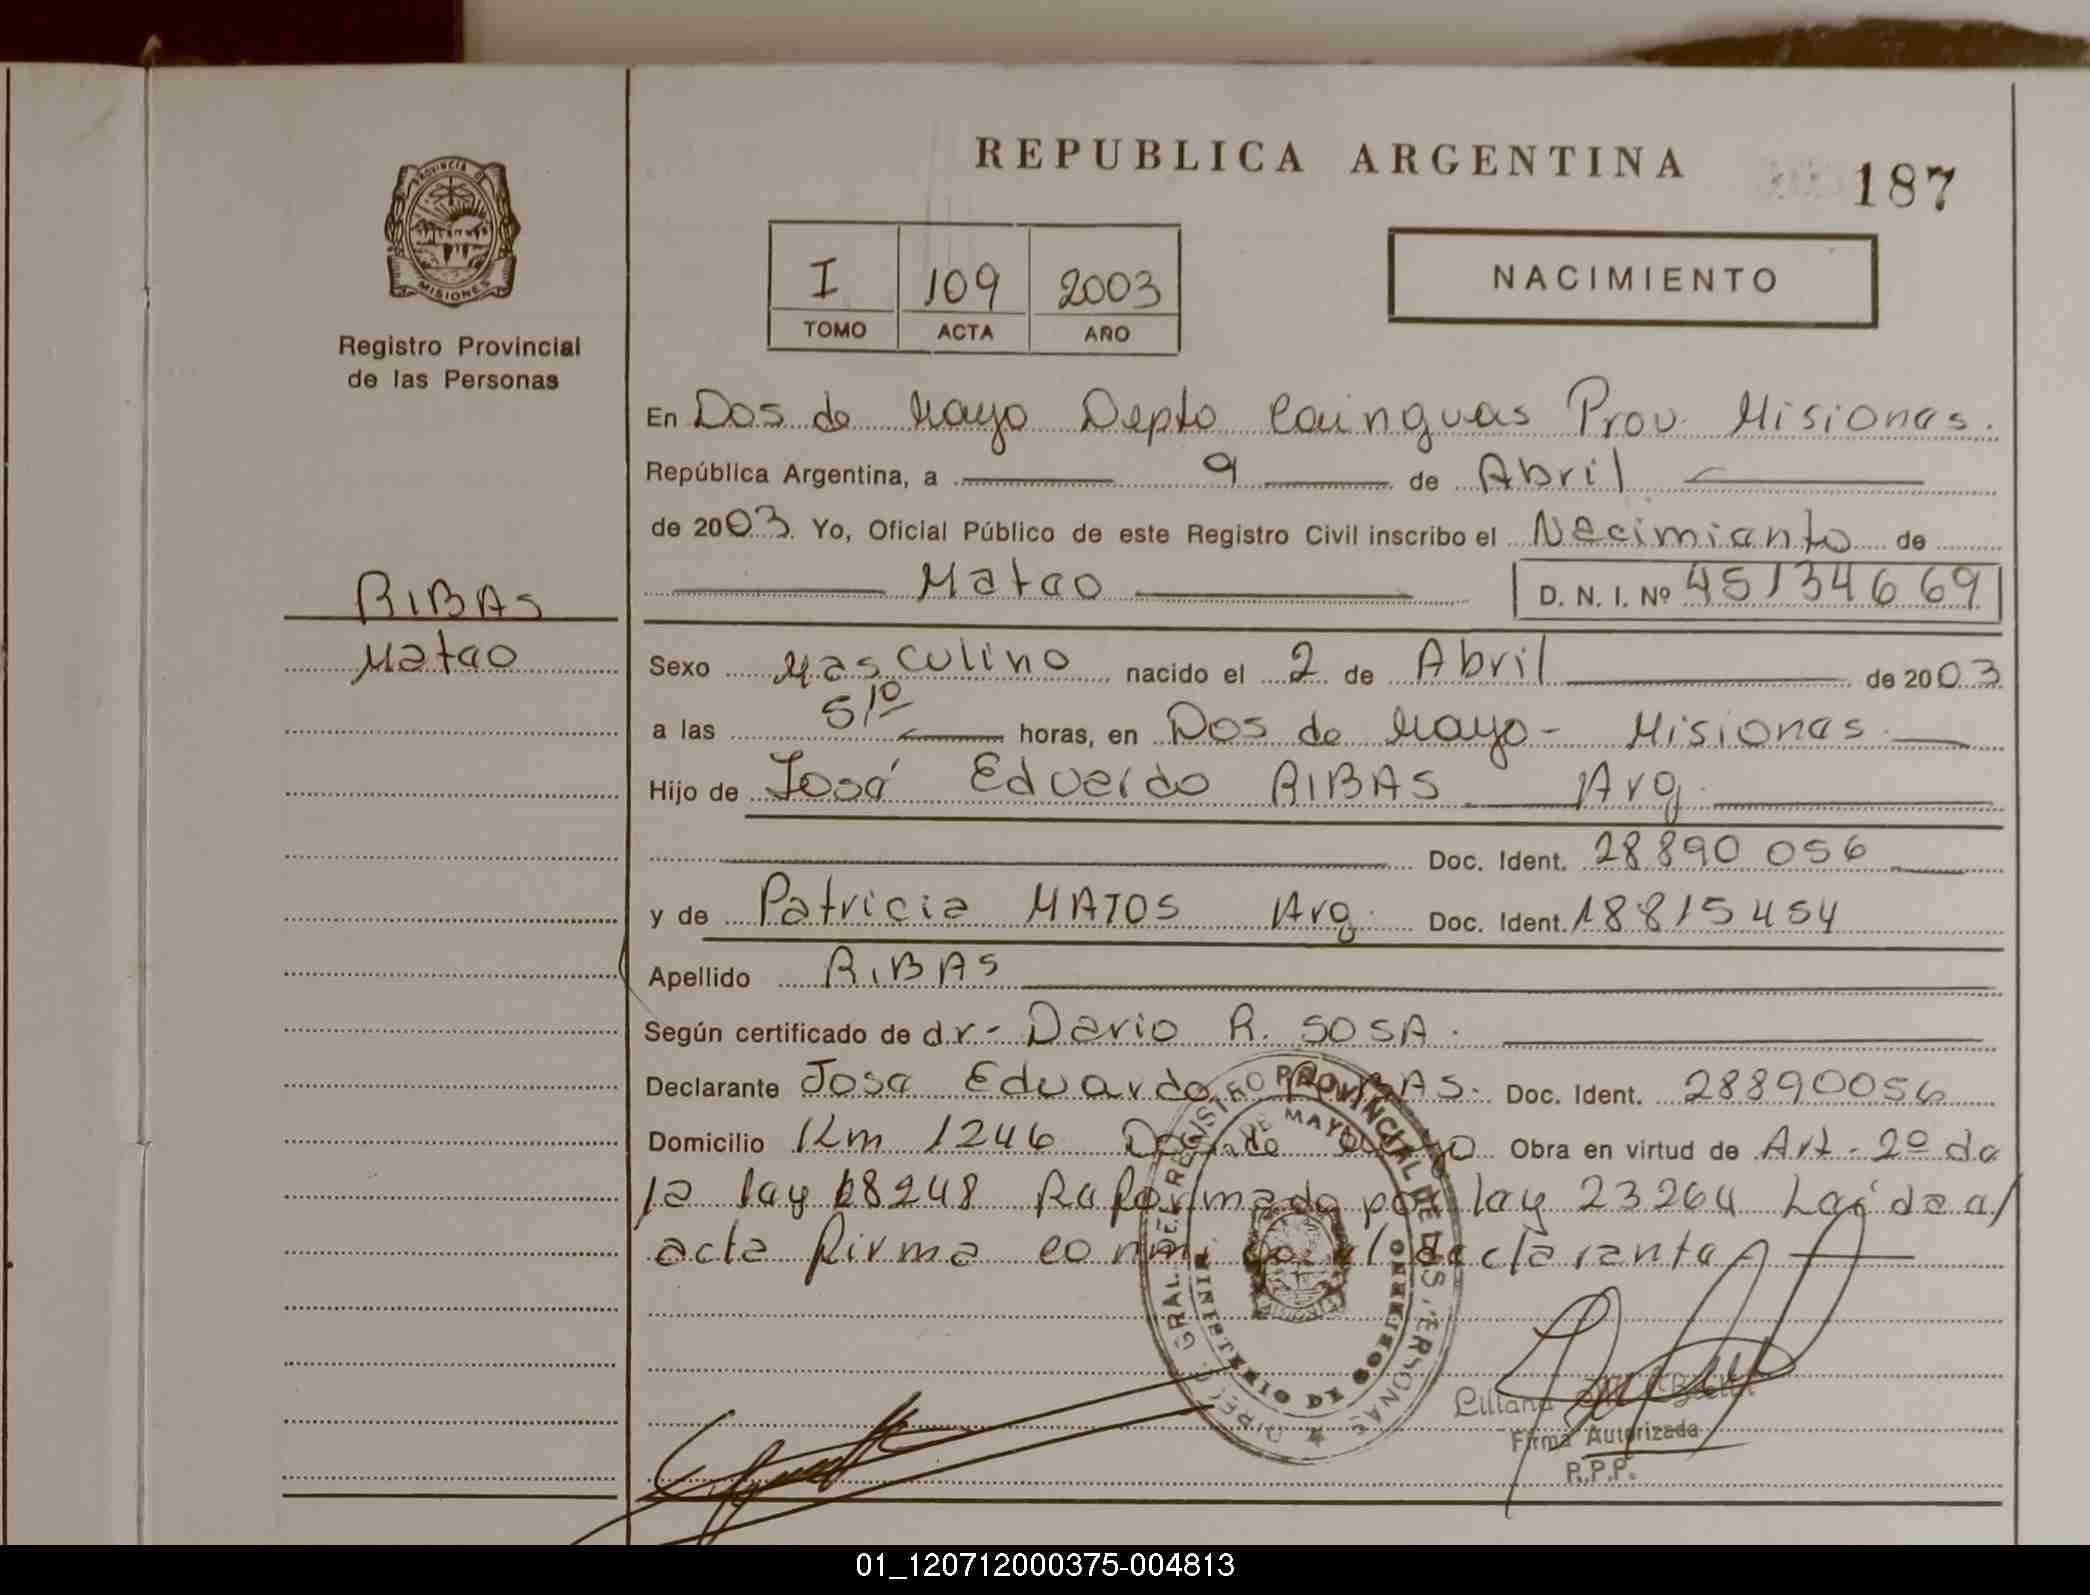 REPUBLICA ARGENTINA
187
PROVINCIA D
MISIONES
Registro Provincial
de las Personas
I 109 2003
TOMO ACTA AÑO
NACIMIENTO
En Dos de Mayo Depto Cainguas Prov. Misiones.
República Argentina, a 9 de Abril
de 2003. Yo, Oficial Público de este Registro Civil inscribo el Nacimiento de
Mateo D. N. I. Nº 45134669
RIBAS
Mateo
Sexo Masculino nacido el 2 de Abril de 2003
a las 5/10 horas, en Dos de Mayo - Misiones
Hijo de José Eduardo RIBAS Arg.
Doc. Ident. 28890056
y de Patricia MATOS Arg. Doc. Ident. 18815454
Apellido RIBAS
Según certificado de dr- Dario R. SOSA.
Declarante Jose Eduardo RIBAS. Doc. Ident. 28890056
Domicilio Km 1246 Dos de Mayo Obra en virtud de Art. 2º de
la ley 18248 Reformado por ley 23264 Leída el
acta firma conmigo el declarante
REGISTRO PROVINCIAL DE LAS PERSONAS
DE MAYO
MINISTERIO DE GOBIERNO
Liliana
Firma Autorizada
R.P.P.
01_120712000375-004813